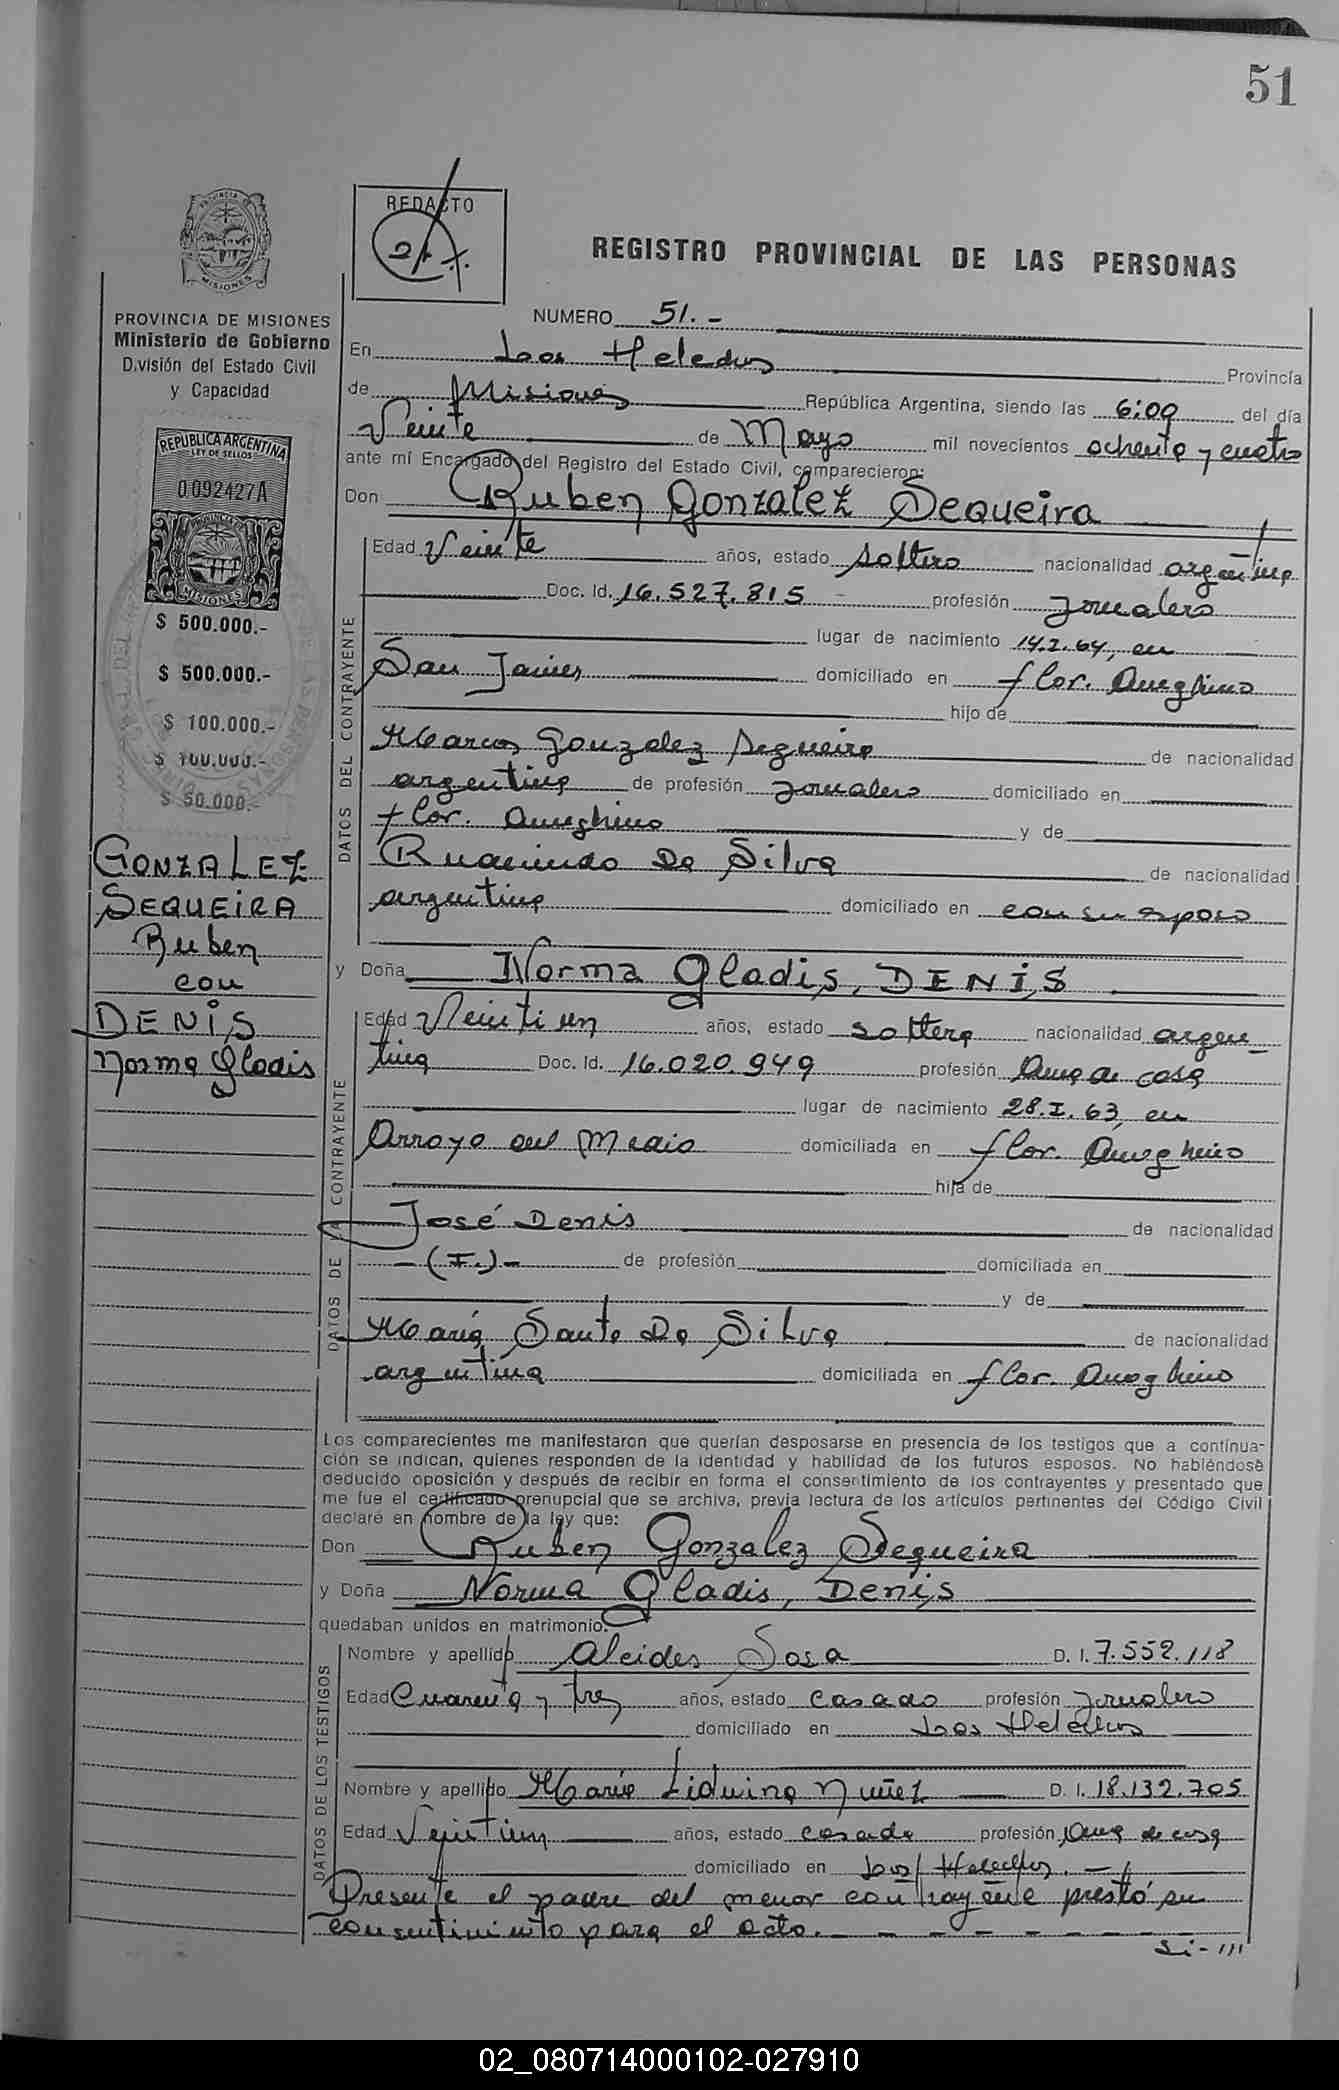 51
REDACTO
REGISTRO PROVINCIAL DE LAS PERSONAS
PROVINCIA DE MISIONES
Ministerio de Gobierno
División del Estado Civil
y Capacidad
REPUBLICA ARGENTINA
LEY DE SELLOS
0.092427A
MISIONES
$ 500.000.-
$ 500.000.-
$ 100.000.-
$ 100.000.-
$ 50.000.-
GONZALEZ
SEQUEIRA
Ruben
con
DENIS
Norma Gladis
NUMERO 51.-
En Los Helechos Provincia
de Misiones República Argentina, siendo las 6:00 del día
Veinte de Mayo mil novecientos ochenta y cuatro
ante mí Encargado del Registro del Estado Civil, comparecieron:
Don Ruben Gonzalez Sequeira
DATOS DEL CONTRAYENTE
Edad Veinte años, estado soltero nacionalidad argentina
Doc. Id. 16.527.815 profesión jornalero
lugar de nacimiento 14.I.64, en
San Javier domiciliado en flor. Ameghino
hijo de
Marcos Gonzalez Sequeira de nacionalidad
argentina de profesión jornalero domiciliado en
flor. Ameghino y de
Da Silva de nacionalidad
argentina domiciliado en con su esposo
y Doña Norma Gladis, DENIS
DATOS DE LA CONTRAYENTE
Edad Veintiun años, estado soltera nacionalidad argen-
tina Doc. Id. 16.020.949 profesión Ama de casa
lugar de nacimiento 28.I.63, en
Arroyo del Medio domiciliada en flor. Ameghino
hija de
José Denis de nacionalidad
-(F.)- de profesión domiciliada en
y de
María Santa Da Silva de nacionalidad
argentina domiciliada en flor. Ameghino
Los comparecientes me manifestaron que querían desposarse en presencia de los testigos que a continua-
ción se indican, quienes responden de la identidad y habilidad de los futuros esposos. No habiéndose
deducido oposición y después de recibir en forma el consentimiento de los contrayentes y presentado que
me fue el certificado prenupcial que se archiva, previa lectura de los artículos pertinentes del Código Civil
declaré en nombre de la ley que:
Don Ruben Gonzalez Sequeira
y Doña Norma Gladis, Denis
quedaban unidos en matrimonio.
DATOS DE LOS TESTIGOS
Nombre y apellido Alcides Sosa D. I. 7.552.118
Edad Cuarenta y tres años, estado casado profesión jornalero
domiciliado en Los Helechos
Nombre y apellido María Liduina Nuñez D. I. 18.132.705
Edad Veintiun años, estado casada profesión Ama de casa
domiciliado en Los Helechos. -
Presente el padre del menor contrayente prestó su
consentimiento para el acto. - - - - - -
Si- ///
02_080714000102-027910